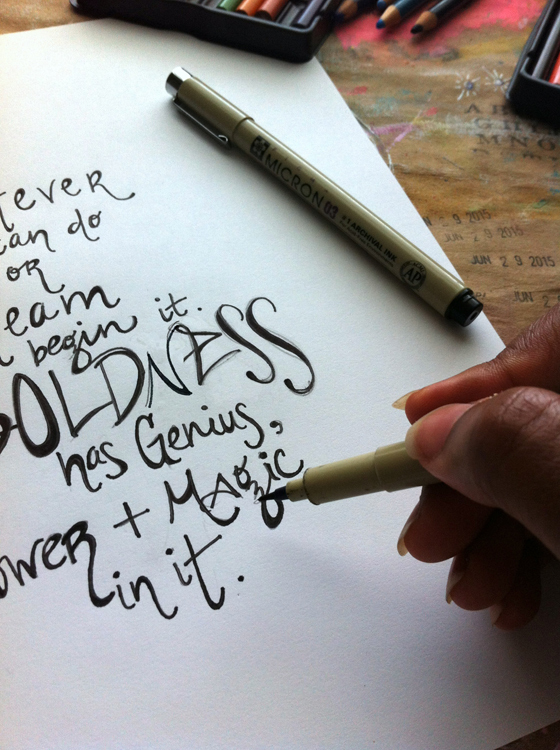 tever
can do
or
eam
begin it.
BOLDNESS
has Genius,
ower + Magic
in it.
MICRON 03 ARCHIVAL INK
AP
N 2 9 2015
JUN 2 9 2015
JUN 2 9 2015
JUN 2 9 2015
MNO